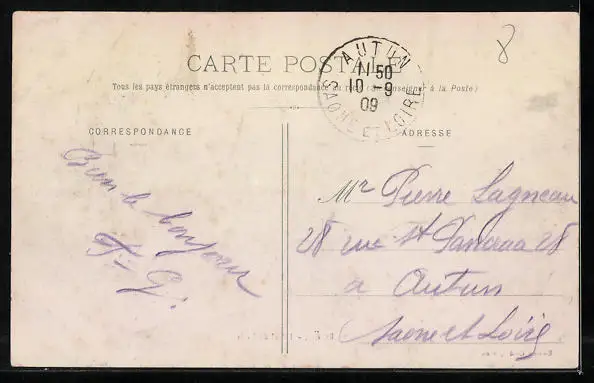 8
CARTE POSTALE
Tous les pays étrangers n'acceptent pas la correspondance au recto (se renseigner à la Poste)
AUTUN
11 50
10 -9
09
SAONE ET LOIRE
CORRESPONDANCE
ADRESSE
Bien le bonjour
F. G.
Mr Pierre Lagneau
28 rue St Pancrace 28
a Autun
Saone et Loire